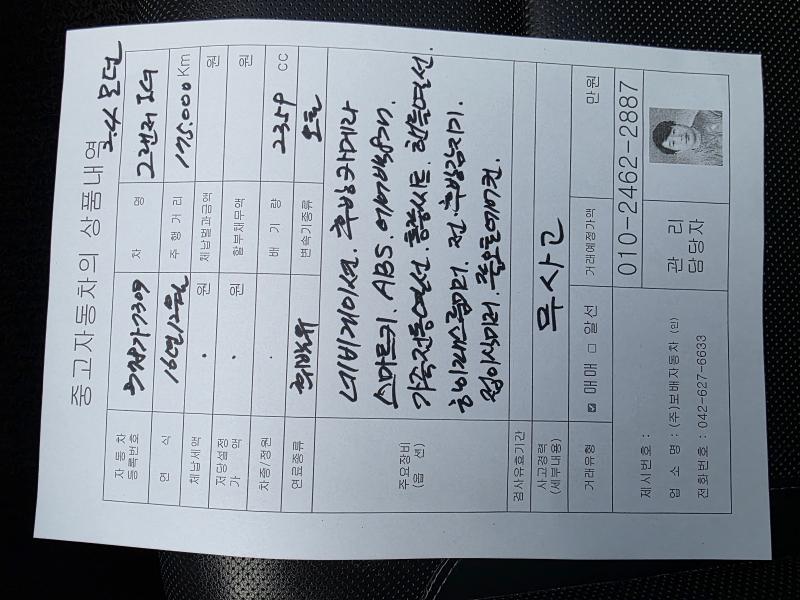 중고자동차의 상품내역
2.4 모던
자동차등록번호
차 명 그랜저 IG
연 식 16년 12월
주 행 거 리 175.000 Km
체납세액 · 원
체납벌과금액 원
저당설정가 액 · 원
할부채무액 원
차종/정원 ·
배 기 량 2359 cc
연료종류 휘발유
변속기종류 오토
주요장비 (옵 션)
네비게이션. 후방카메라
스마트키. ABS 에어백
가죽전동열선. 통풍시트. 핸들열선.
하이패스룸미러. 전.후방감지기.
접이식미러. 풀오토에어컨.
검사유효기간
사고경력 (세부내용) 무사고
거래유형 ☑ 매매 □ 알선
거래예정가액 만원
제시번호 :
업 소 명 : (주)보배자동차 (인)
전화번호 : 042-627-6633
관 리
담당자
010-2462-2887